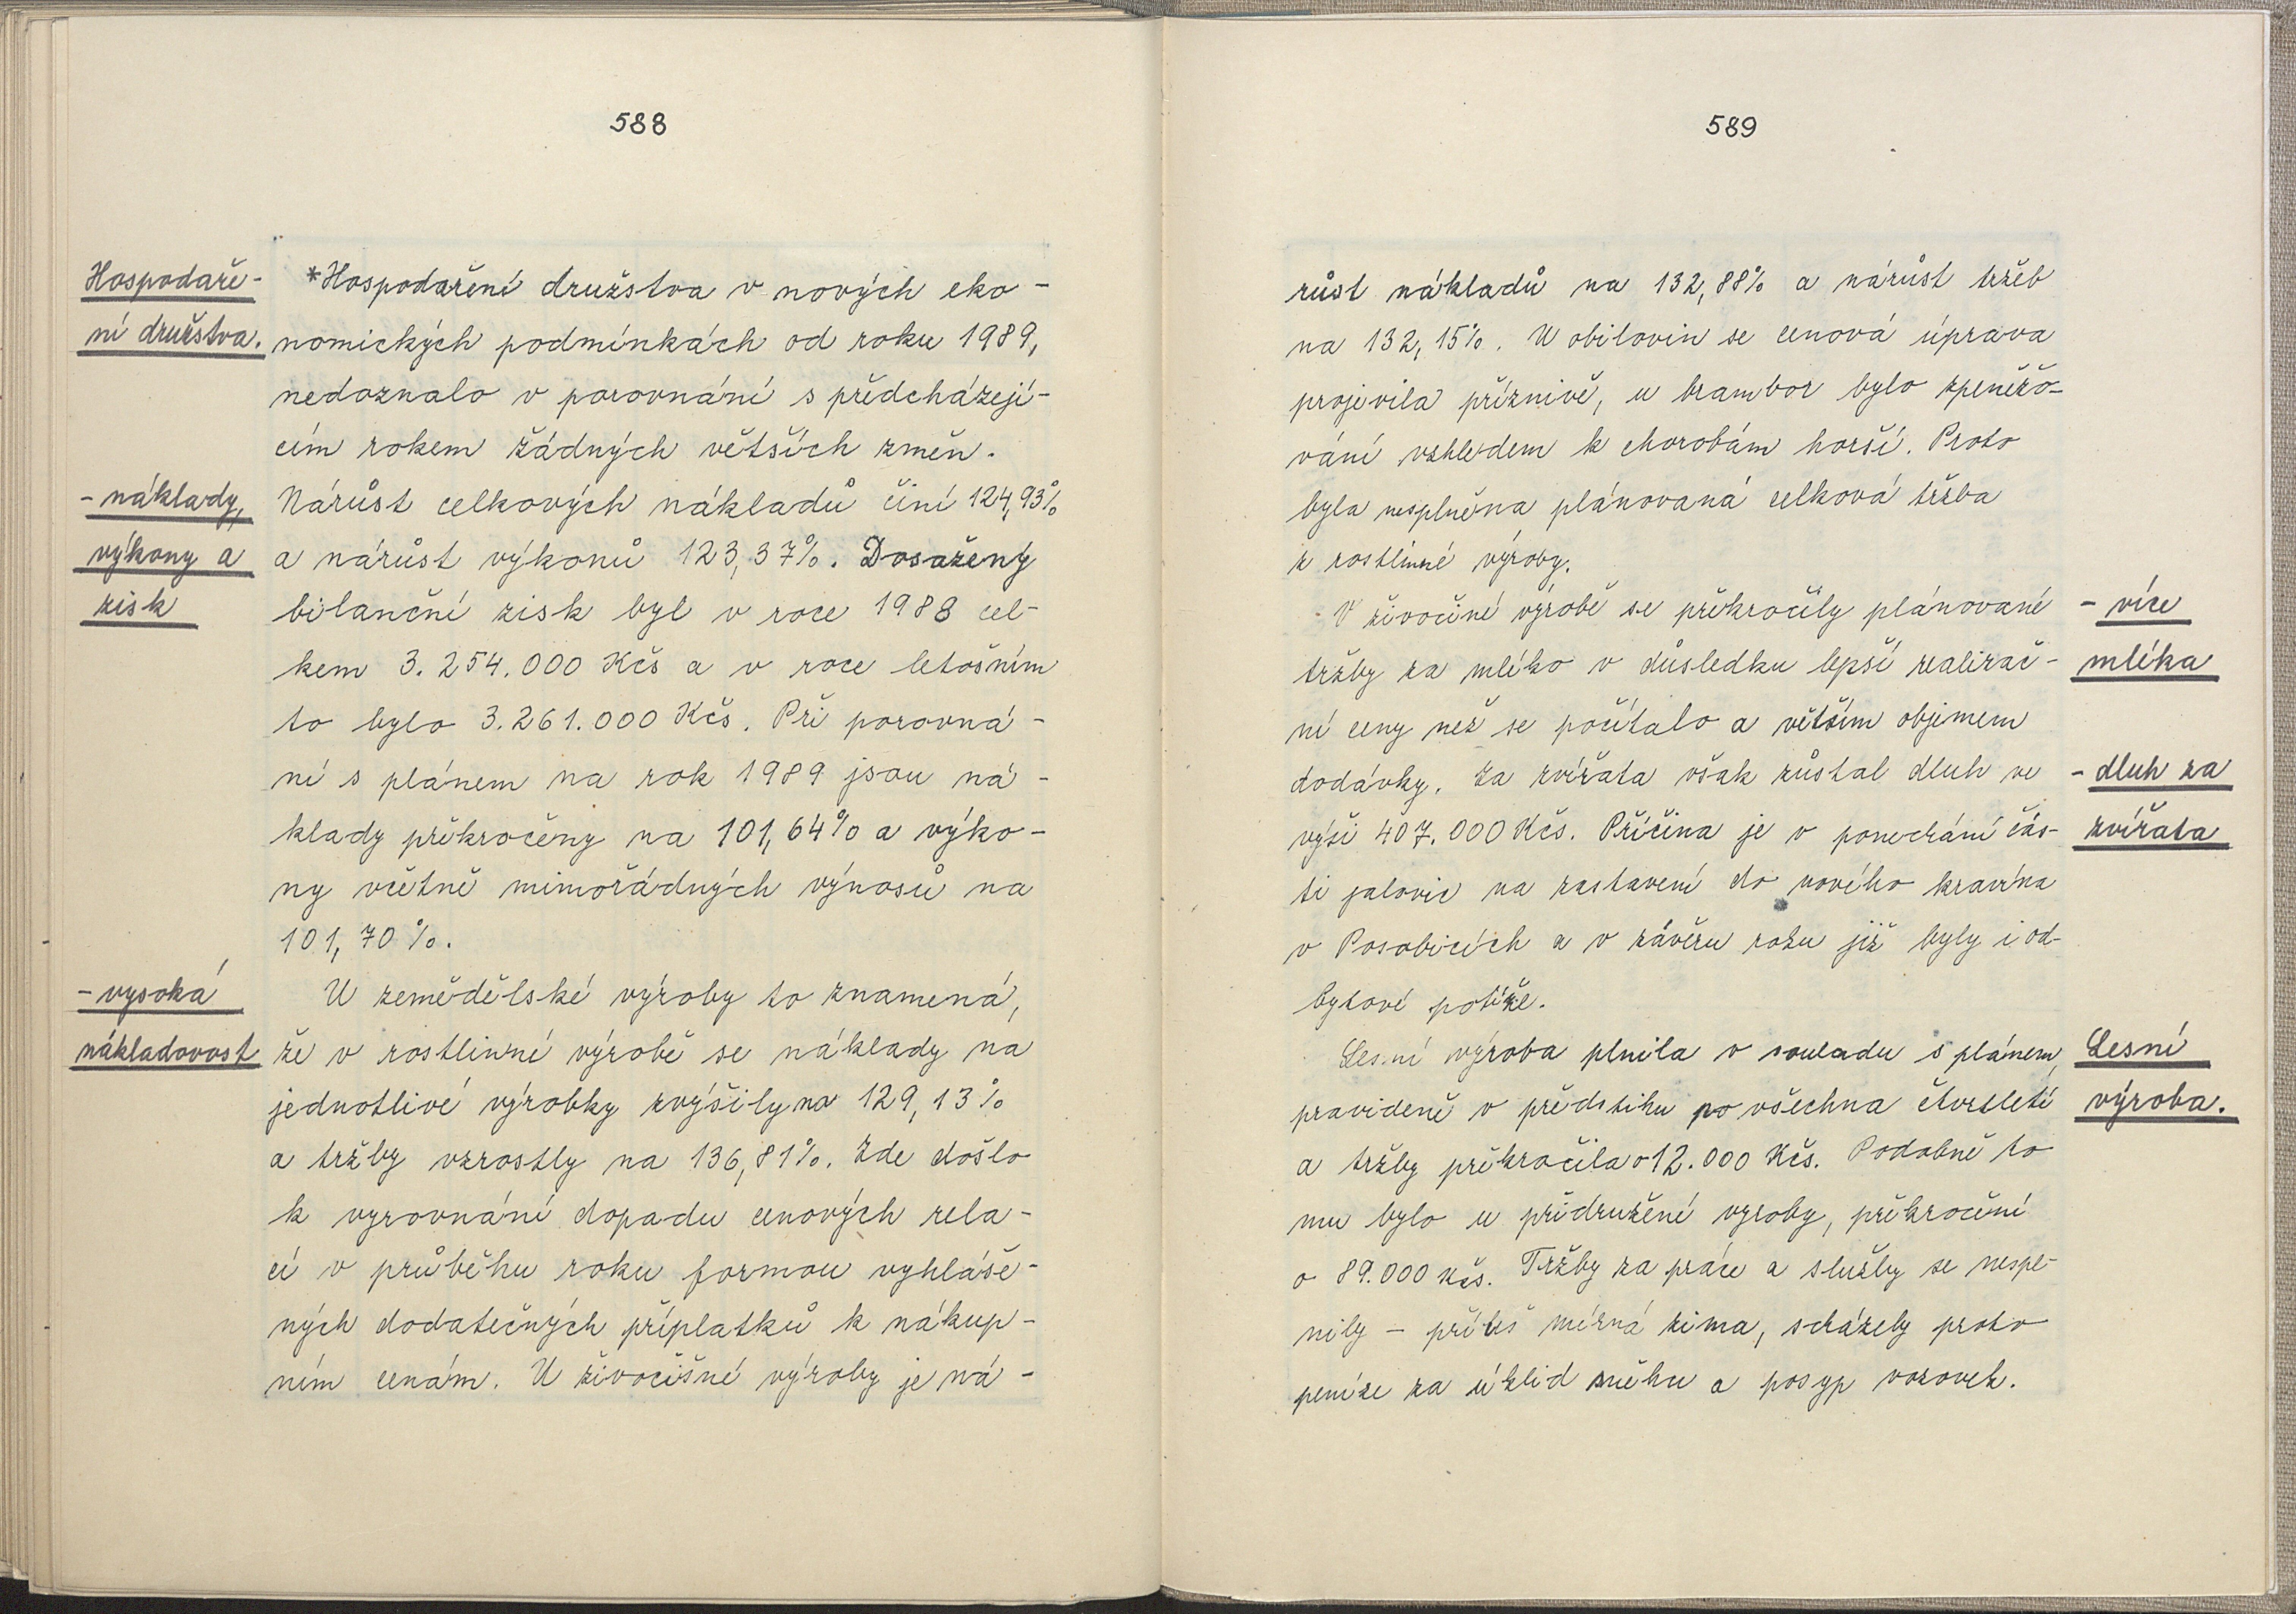 588
Hospodaře-
ní družstva.
*Hospodaření družstva v nových eko-
nomických podmínkách od roku 1989,
nedoznalo v porovnání s předcházejí-
cím rokem žádných větších změn.
- náklady,
výkony a
zisk
Nárůst celkových nákladů činí 124,93%
a nárůst výkonů 123,37%. Dosažený
bilanční zisk byl v roce 1988 cel-
kem 3.254.000 Kčs a v roce letošním
to bylo 3.261.000 Kčs. Při porovná-
ní s plánem na rok 1989 jsou ná-
klady překročeny na 101,64% a výko-
ny včetně mimořádných výnosů na
101,70%.
- vysoká
nákladovost
U zemědělské výroby to znamená,
že v rostlinné výrobě se náklady na
jednotlivé výrobky zvýšily na 129,13%
a tržby vzrostly na 136,81%. Zde došlo
k vyrovnání dopadu cenových rela-
cí v průběhu roku formou vyhláše-
ných dodatečných příplatků k nákup-
ním cenám. U živočišné výroby je ná-
589
růst nákladů na 132,88% a nárůst tržeb
na 132,15%. U obilovin se cenová úprava
projevila příznivě, u brambor bylo zpeněžo-
vání vzhledem k chorobám horší. Proto
byla nesplněna plánovaná celková tržba
z rostlinné výroby.
V živočiné výrobě se překročily plánované
tržby za mléko v důsledku lepší realizač-
ní ceny než se počítalo a větším objemem
dodávky. Za zvířata však zůstal dluh ve
výši 407.000 Kčs. Příčina je v ponechání čás-
ti jalovic na zastavení do nového kravína
v Posobicích a v závěru roku již byly i od-
bytové potíže.
- více
mléka
- dluh za
zvířata
Lesní výroba plnila v souladu s plánem,
pravideně v předstihu po všechna čtvrtletí
a tržby překročila o 12.000 Kčs. Podobně to
mu bylo u přidružené vyroby, překročení
o 89.000 Kčs. Tržby za práce a služby se nespl-
nily - příliš mírná zima, scházely proto
peníze za úklid sněhu a posyp vozovek.
Lesní
výroba.